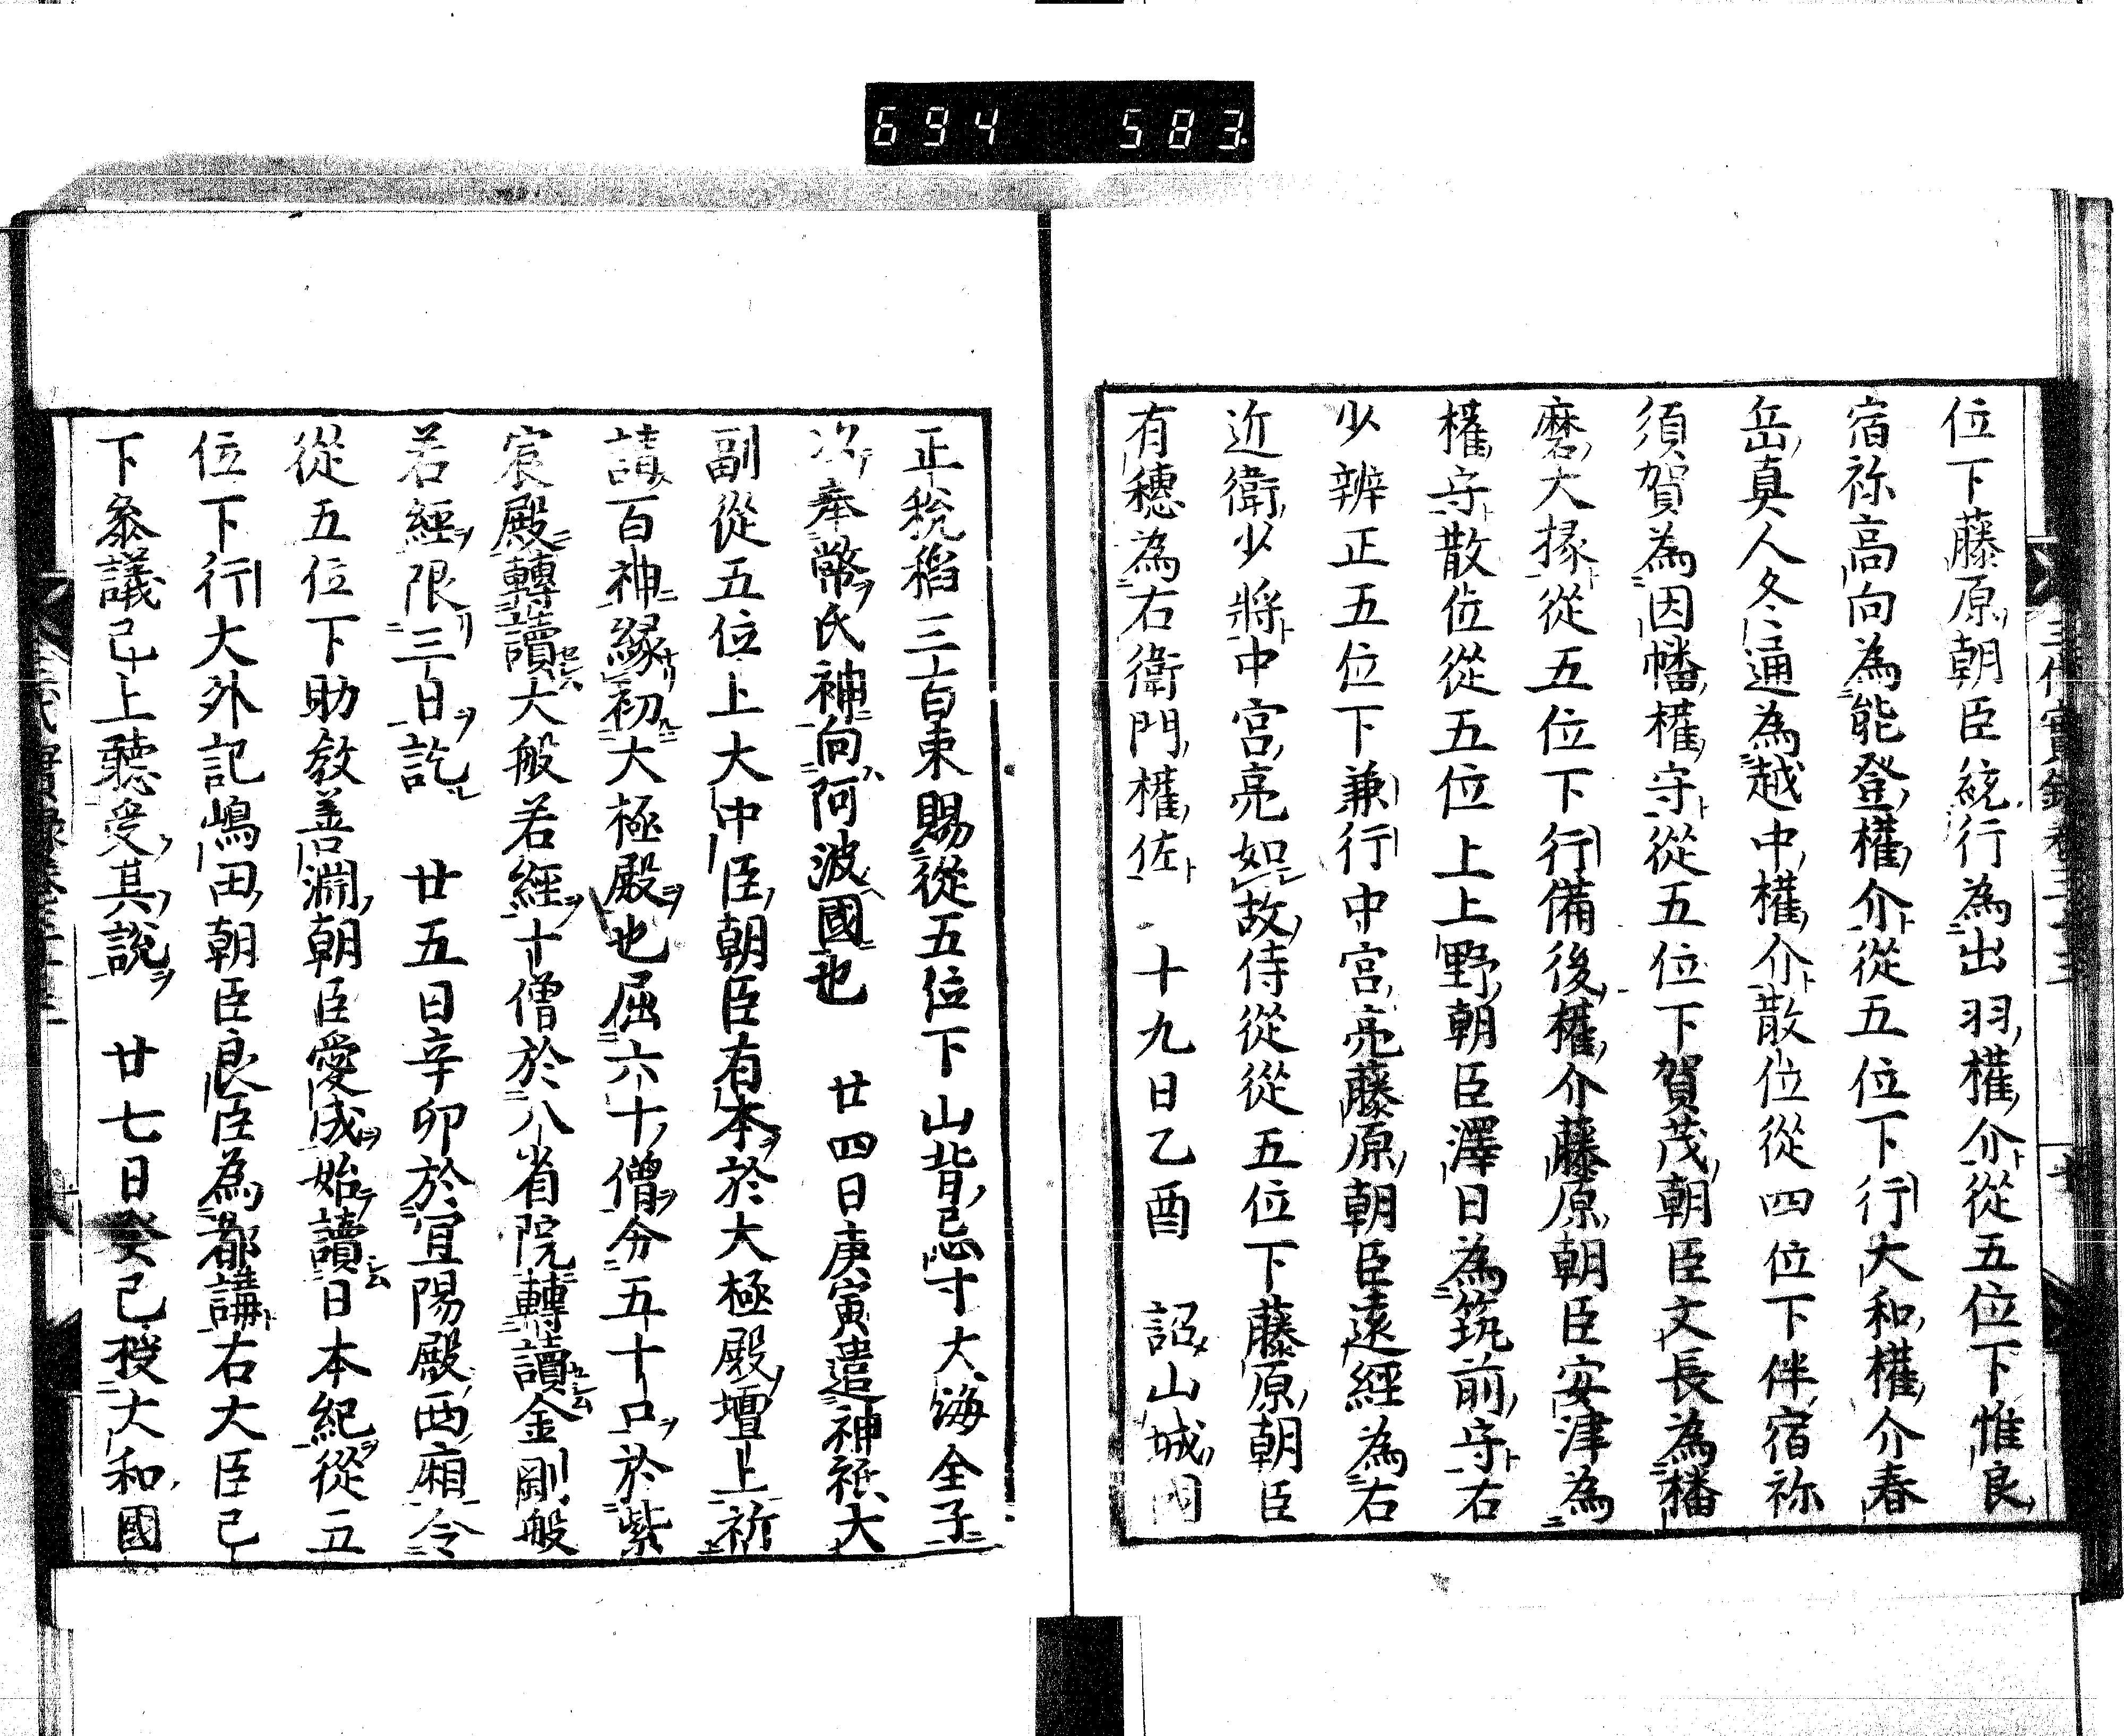 694 583
位下藤原朝臣統行為出羽權介從五位下惟良
宿祢高向為能登權介從五位下行大和權介春
岳真人冬通為越中權介散位從四位下伴宿祢
須賀為因幡權守從五位下賀茂朝臣文長為播
磨大掾從五位下行備後權介藤原朝臣安津為
權守散位從五位上上野朝臣澤日為筑前守右
少辨正五位下兼行中宮亮藤原朝臣遠經為右
近衛少將中宮亮如故侍從從五位下藤原朝臣
有穗為右衛門權佐 十九日乙酉 詔山城國
正稅稻三百束賜從五位下山背忌寸大海全子
次奉幣氏神向阿波國也 廿四日庚寅遣神祇大
副從五位上大中臣朝臣有本於大極殿壇上祈
請百神緣初大極殿也屈六十僧分五十口於紫
宸殿轉讀大般若經十僧於八省院轉讀金剛般
若經限三日訖 廿五日辛卯於宜陽殿西廂令
從五位下助教善淵朝臣愛成始讀日本紀從五
位下行大外記嶋田朝臣良臣為都講右大臣已
下參議已上聽受其說 廿七日癸巳授大和國